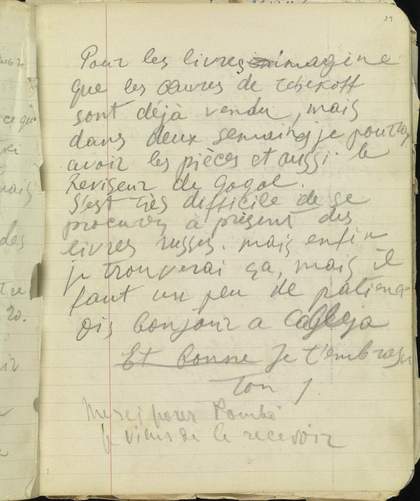 29
Pour les livres imagine
que les œuvres de Tchekoff
sont déjà vendu, mais
dans deux semaines je pourrai
avoir les pièces et aussi le
Reviseur de Gogol.
S'est très difficile de se
procurer à présent des
livres russes. mais enfin
je trouverai ça, mais il
faut un peu de patience
Dis bonjour a
Et bonne Je t'embrasse
Ton J
Merci pour
je viens de le recevoir